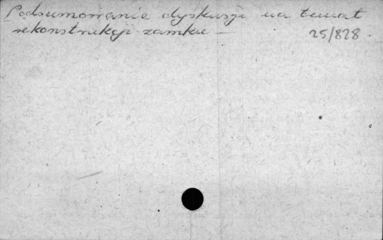 Podsumowanie dyskusji na temat
rekonstrukcji zamku — 25/828.